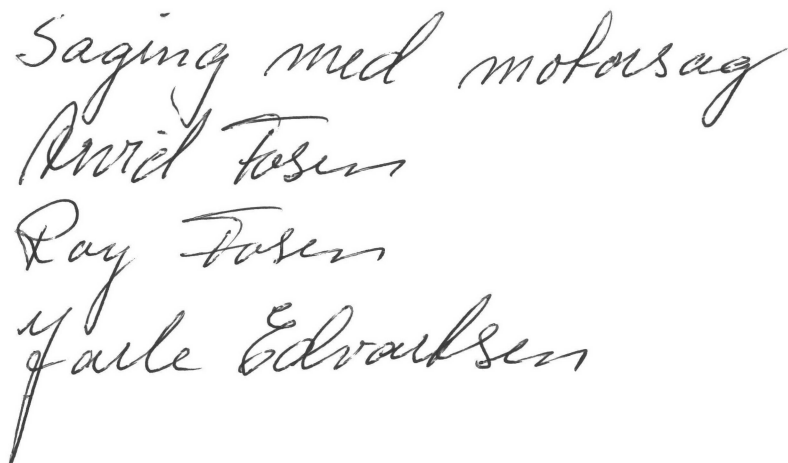 Saging med motorsag
Arvid Fosen
Roy Fosen
Jarle Edvardsen